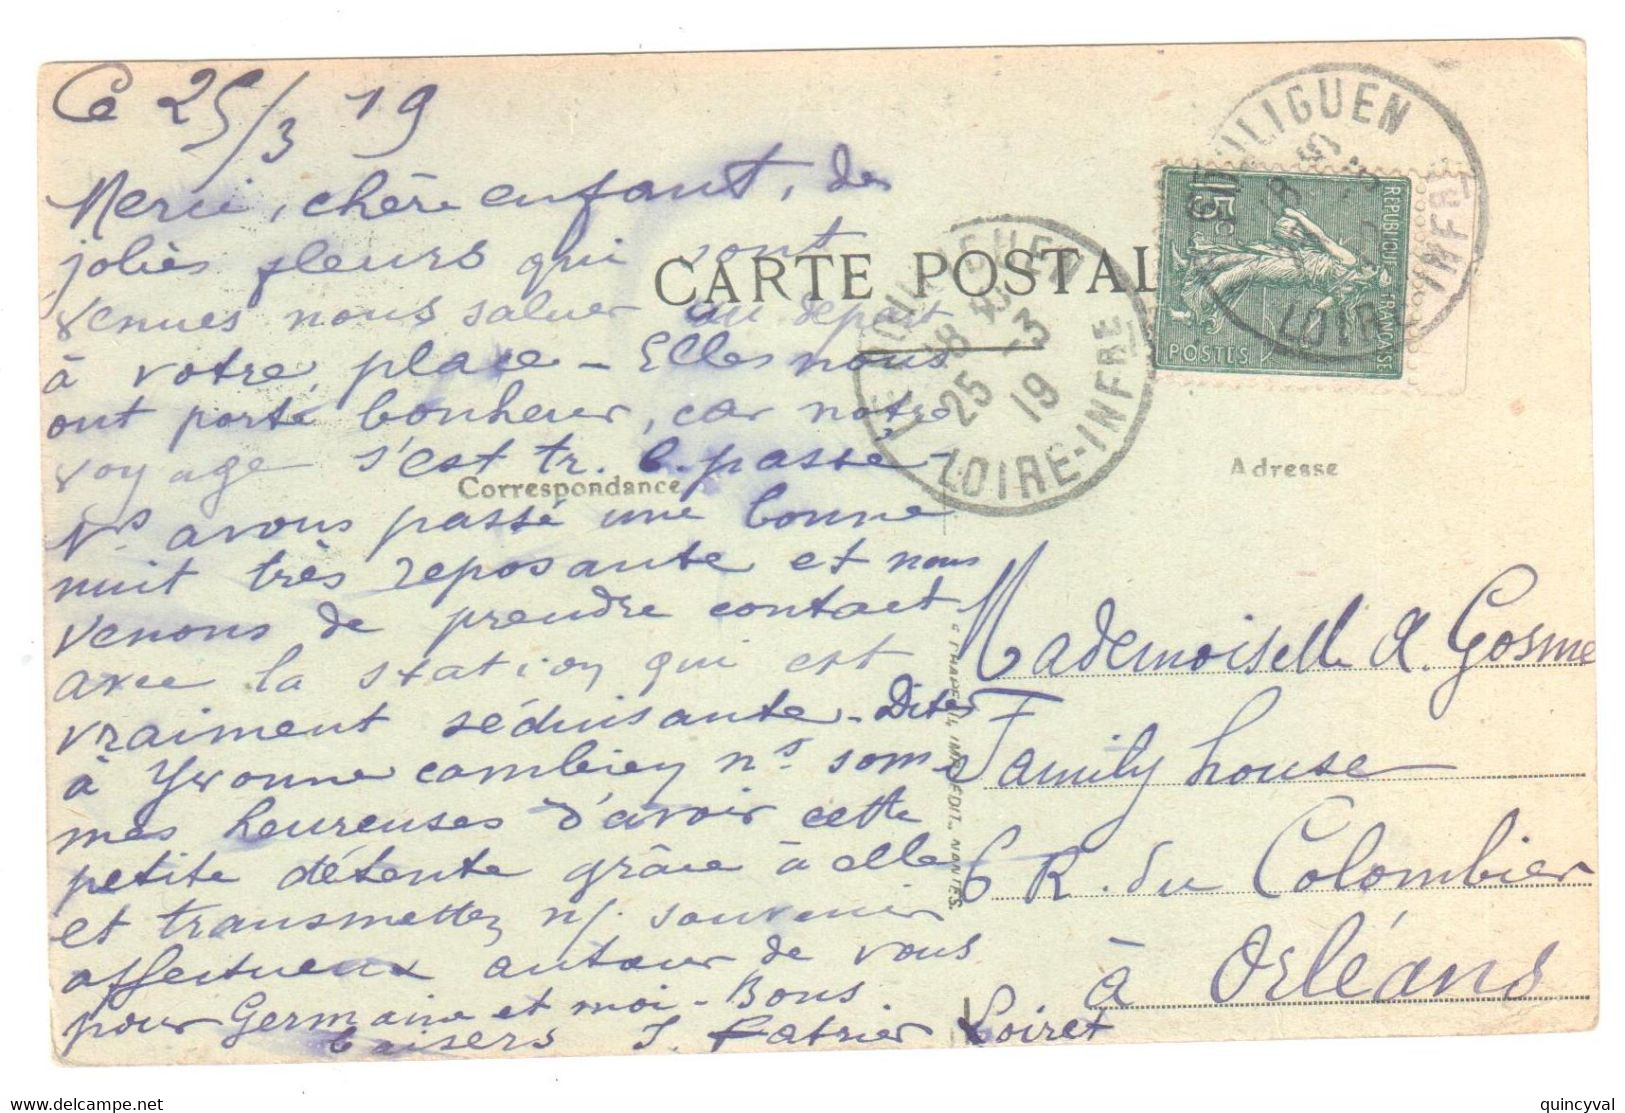 Ce 25/3 19
Merci, chère enfant, des
jolies fleurs qui sont
venues nous saluer au départ
à votre place - Elles nous
ont porté bonheur, car notre
voyage s'est tr. b. passé -
Ns avons passé une bonne
nuit très reposante et nous
venons de prendre contact
avec la station qui est
vraiment séduisante - Dites
à Yvonne combien ns som-
mes heureuses d'avoir cette
petite détente grâce à elle
et transmettez n/. souvenir
affectueux autour de vous
pour Germaine et moi - Bons
baisers J. Fatrier
CARTE POSTALE
Correspondance
Adresse
LE POULIGUEN
18 45
25 -3
19
LOIRE-INFRE
POULIGUEN
LOIRE INFRE
REPUBLIQUE FRANÇAISE
15c
POSTES
IMP. EDIT., NANTES.
Mademoiselle A. Gosme
Family house
6 R. du Colombier
à Orléans
Loiret
www.delcampe.net
quincyval